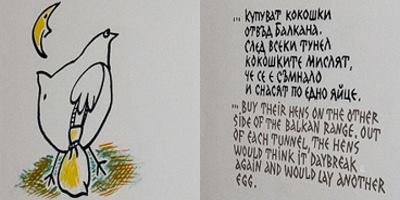 ... КУПУВАТ КОКОШКИ
ОТВЪД БАЛКАНА.
СЛЕД ВСЕКИ ТУНЕЛ
КОКОШКИТЕ МИСЛЯТ,
ЧЕ СЕ Е СЪМНАЛО
И СНАСЯТ ПО ЕДНО ЯЙЦЕ.
... BUY THEIR HENS ON THE OTHER
SIDE OF THE BALKAN RANGE. OUT
OF EACH TUNNEL, THE HENS
WOULD THINK IT DAYBREAK
AGAIN AND WOULD LAY ANOTHER
EGG.